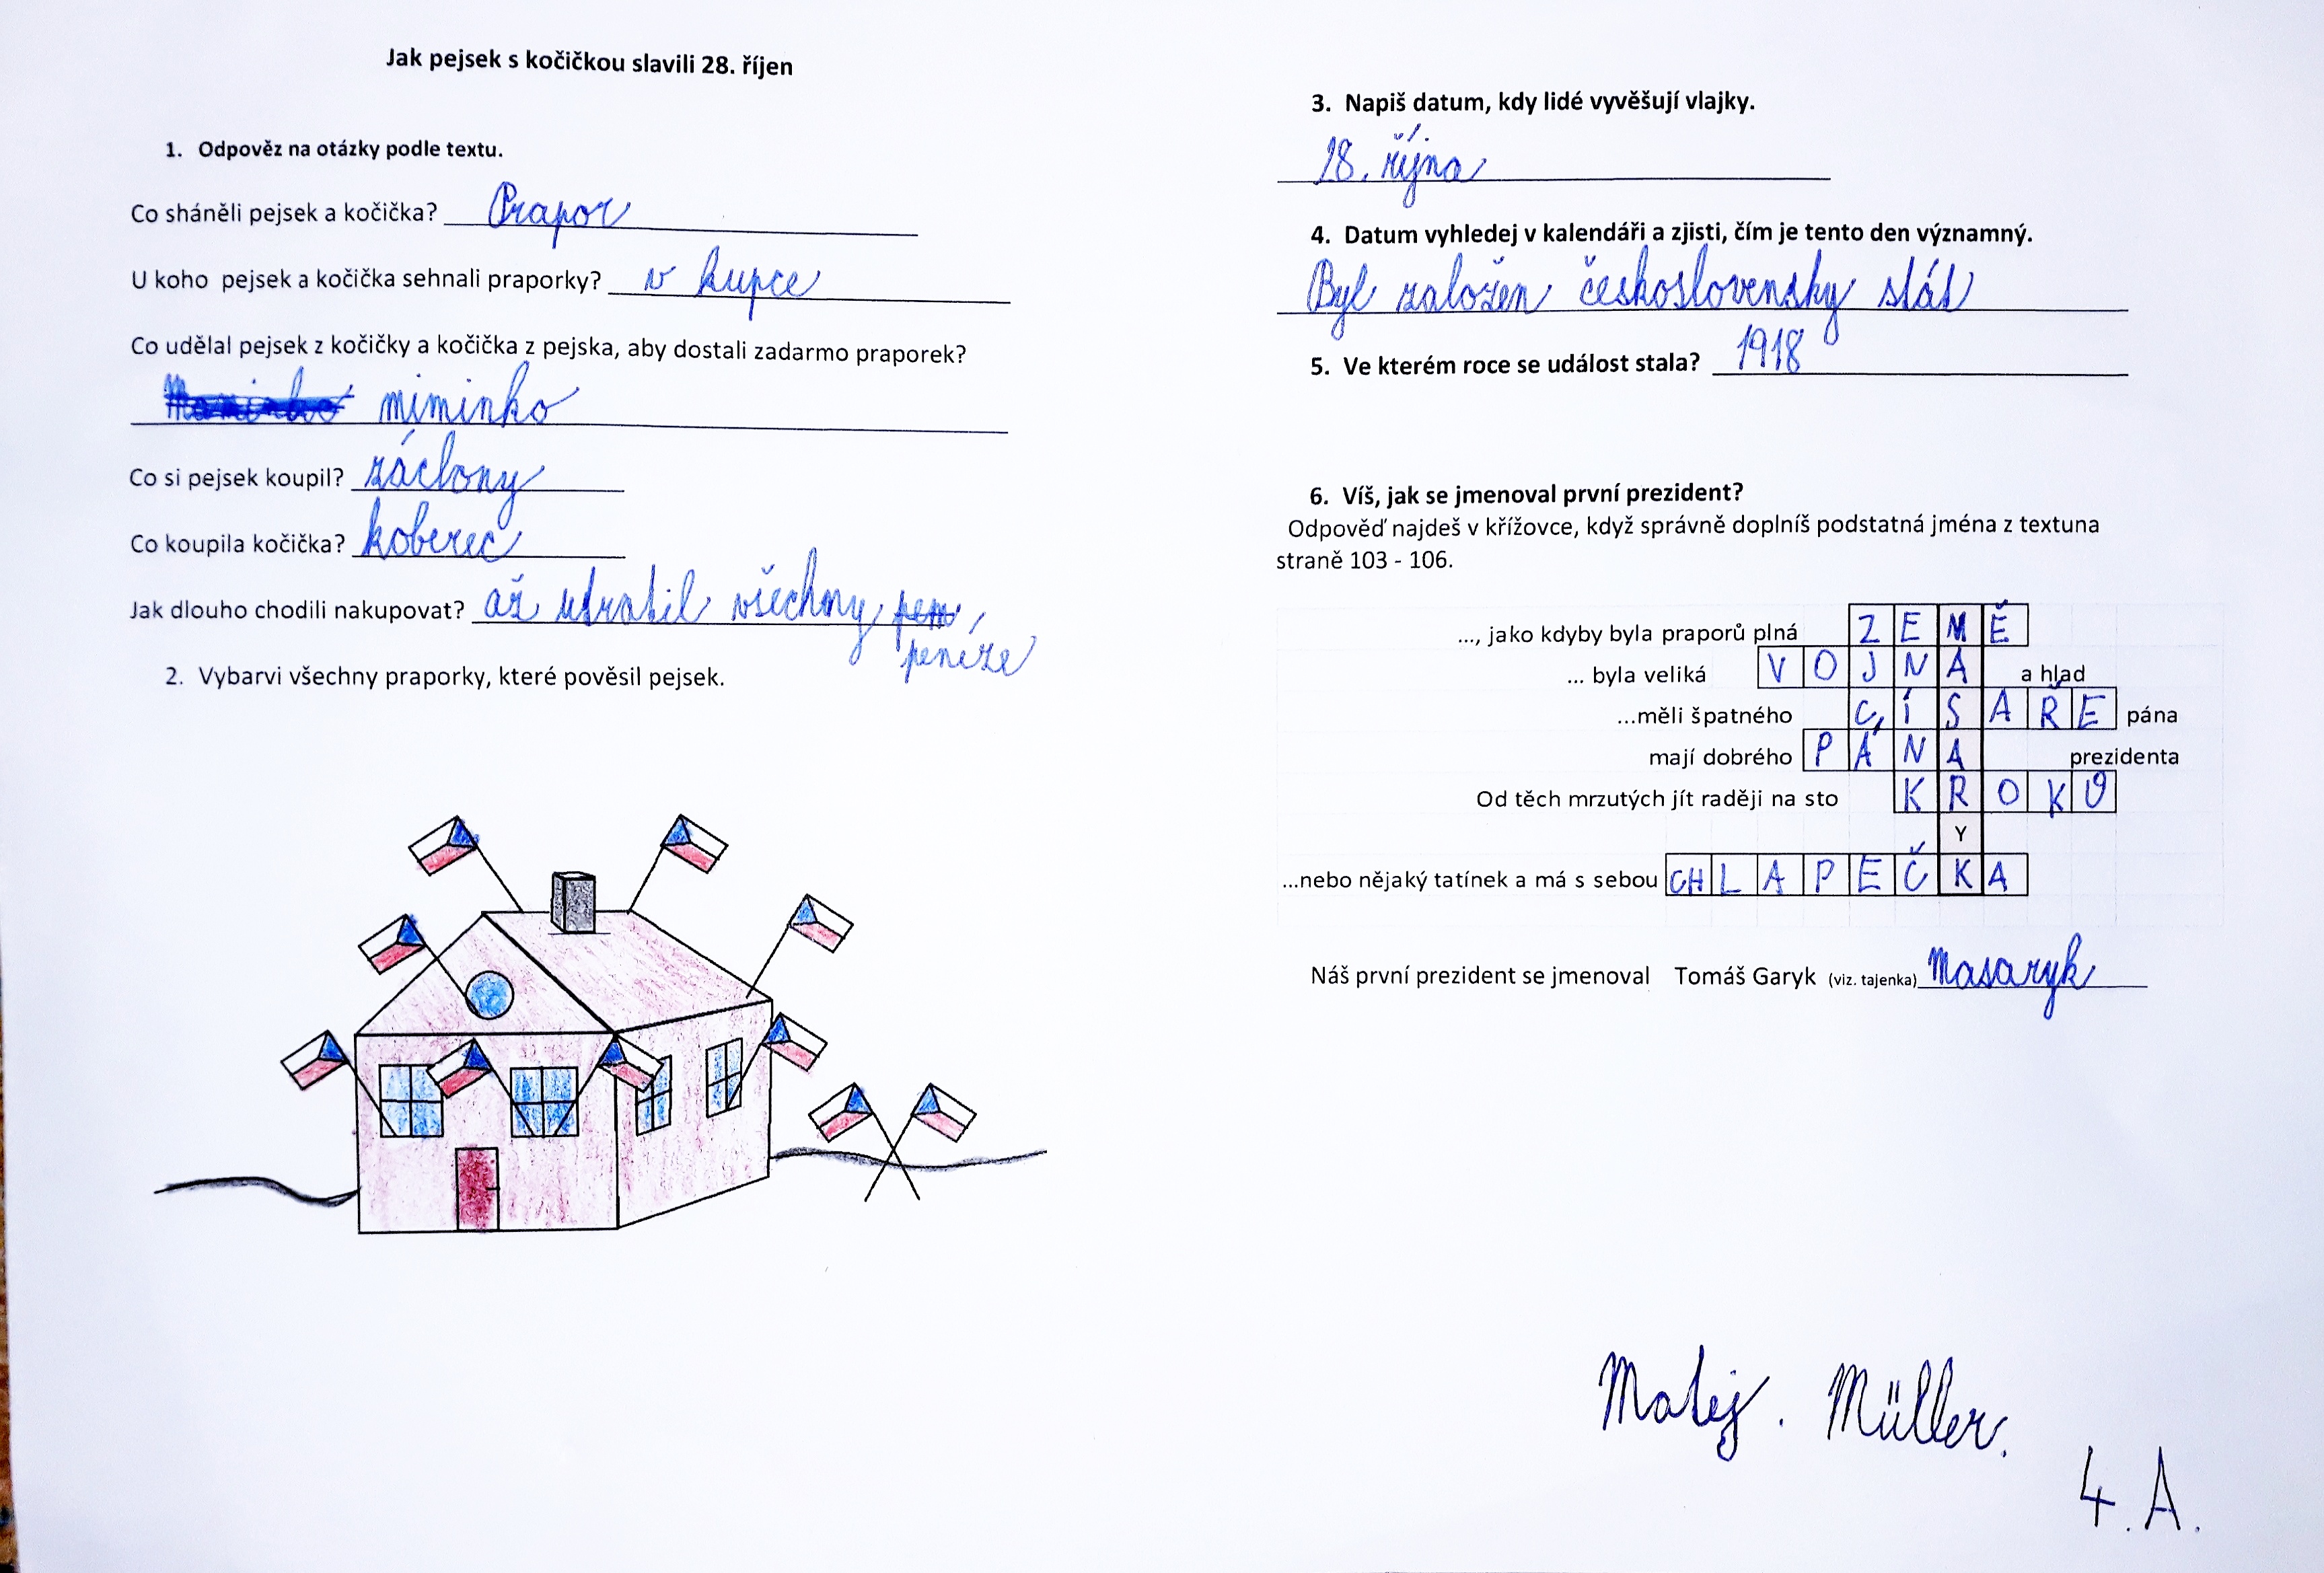 Jak pejsek s kočičkou slavili 28. říjen
1. Odpověz na otázky podle textu.
Co sháněli pejsek a kočička? Prapor
U koho pejsek a kočička sehnali praporky? v kupce
Co udělal pejsek z kočičky a kočička z pejska, aby dostali zadarmo praporek?
miminko
Co si pejsek koupil? záclony
Co koupila kočička? koberec
Jak dlouho chodili nakupovat? až utratil všechny
peníze
2. Vybarvi všechny praporky, které pověsil pejsek.
3. Napiš datum, kdy lidé vyvěšují vlajky.
28. října
4. Datum vyhledej v kalendáři a zjisti, čím je tento den významný.
Byl založen československy stát
5. Ve kterém roce se událost stala? 1918
6. Víš, jak se jmenoval první prezident?
Odpověď najdeš v křížovce, když správně doplníš podstatná jména z textuna
straně 103 - 106.
..., jako kdyby byla praporů plná ZEMĚ
... byla veliká VOJNA a hlad
...měli špatného CÍSAŘE pána
mají dobrého PÁNA prezidenta
Od těch mrzutých jít raději na sto KROKŮ
Y
...nebo nějaký tatínek a má s sebou CHLAPEČKA
Náš první prezident se jmenoval Tomáš Garyk (viz. tajenka) Masaryk
Matěj. Müller.
4.A.